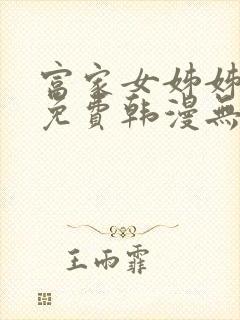 富家女姊姊
免費韩漫無
王雨霏